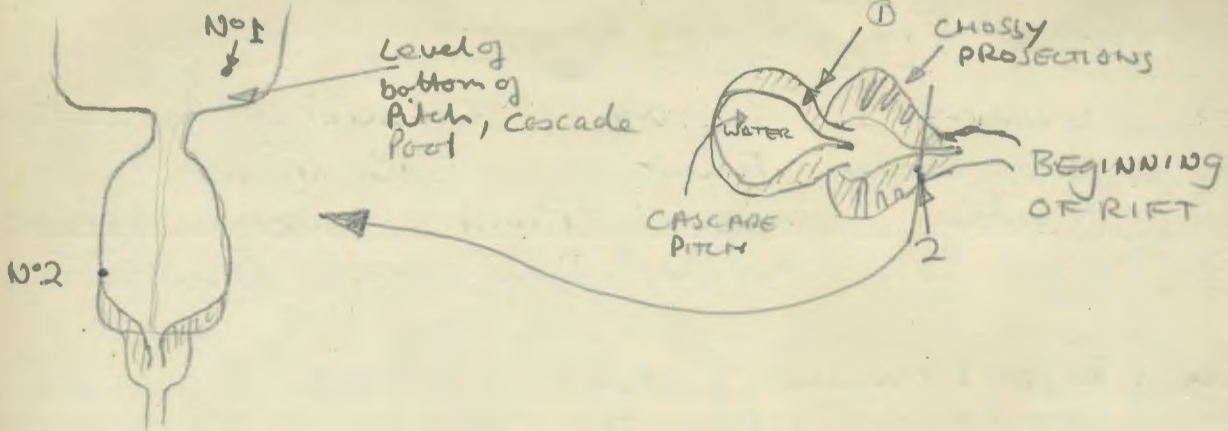 No 1
Level of
bottom of
Pitch, Cascade
Pool
No 2
①
CHOSSY
PROJECTIONS
WATER
CASCADE
PITCH
2
BEGINNING
OF RIFT